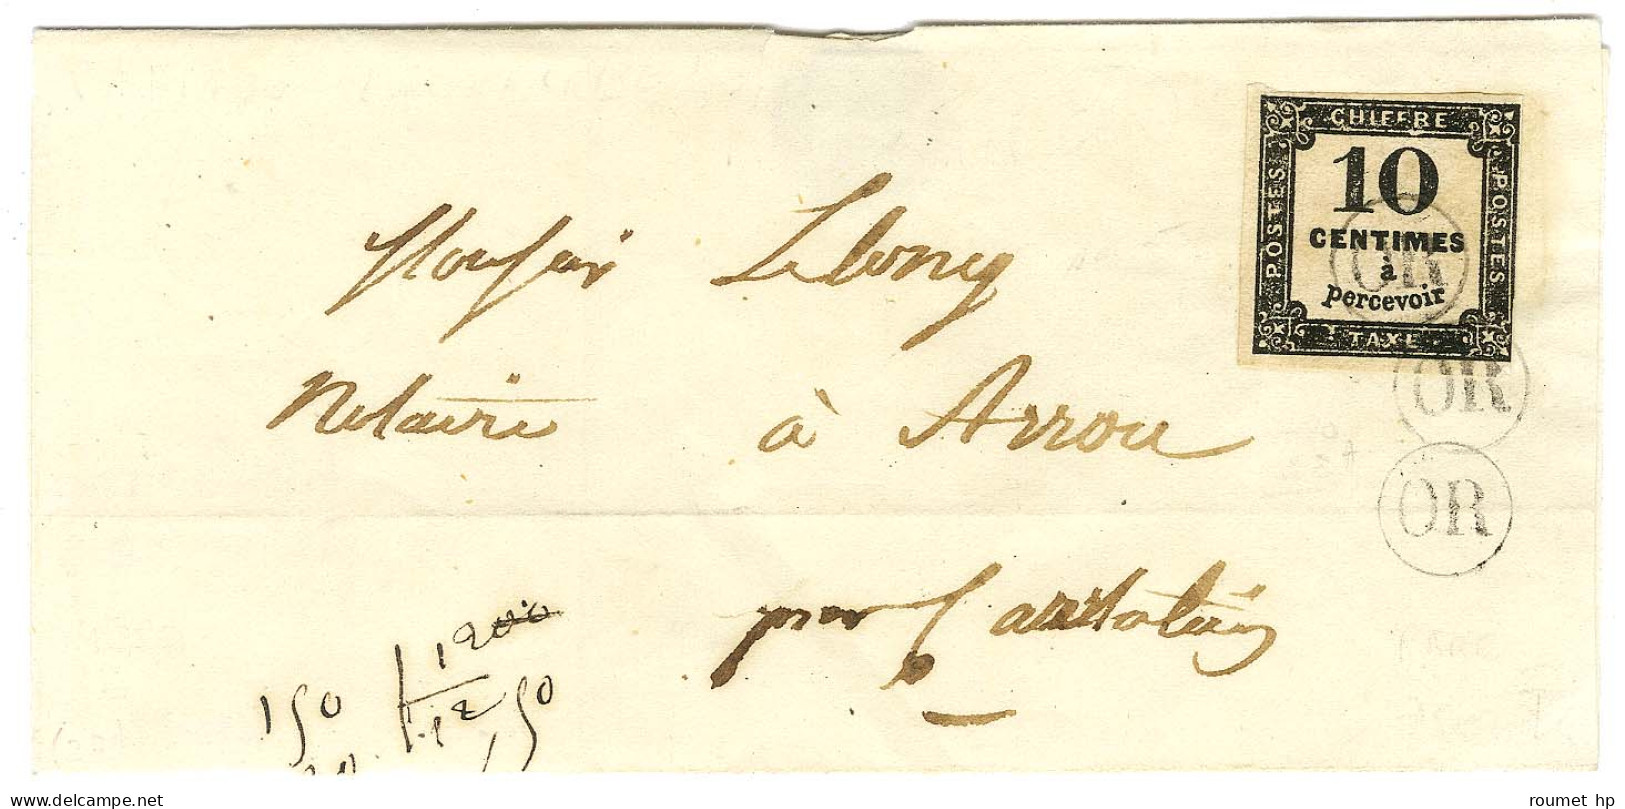 CHIFFRE
POSTES
10
CENTIMES
à
percevoir
POSTES
TAXE
OR
OR
OR
Monsieur
Notaire à Arrou
par
1200
150 12,50
delcampe.net
roumet hp